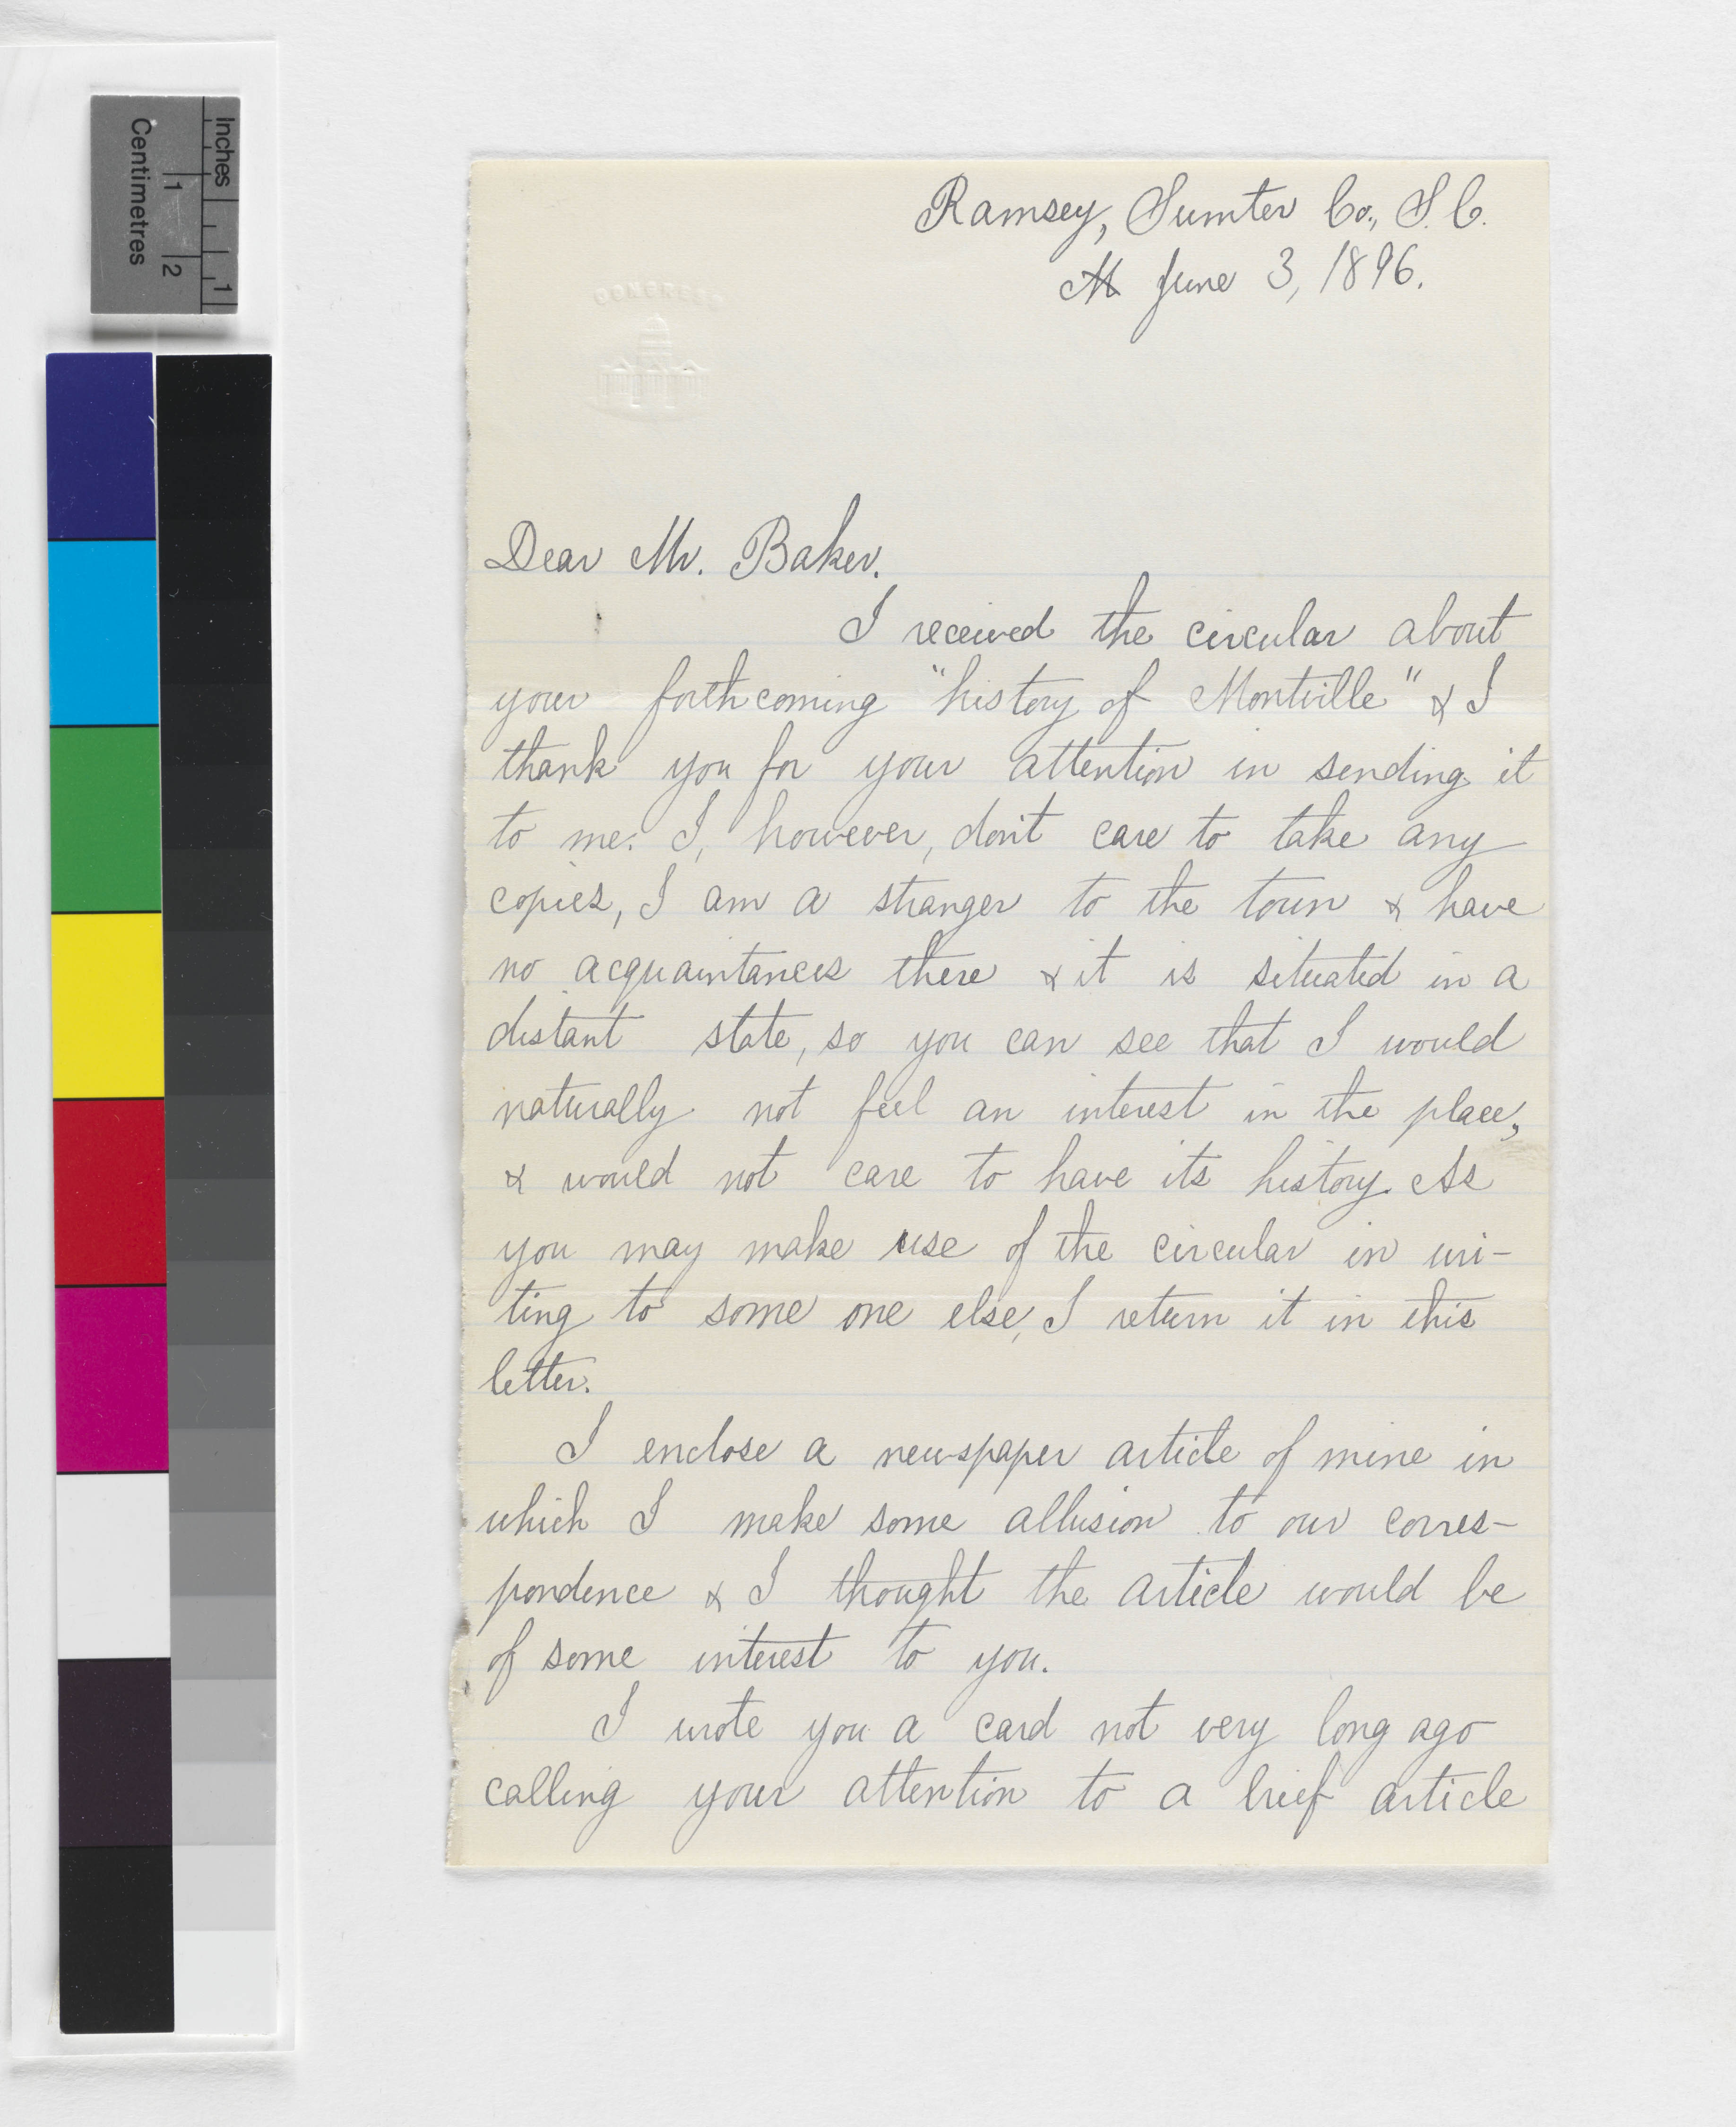 Inches
Centimetres
1
2
1
CONGRESS
Ramsey, Sumter Co., S.C.
M June 3, 1896.
Dear Mr. Baker.
I received the circular about
your forthcoming "history of Montville" & I
thank you for your attention in sending it
to me. I, however, don't care to take any
copies, I am a stranger to the town & have
no acquaintances there & it is situated in a
distant state, so you can see that I would
naturally not feel an interest in the place,
& would not care to have its history. As
you may make use of the circular in wri-
ting to some one else, I return it in this
letter.
I enclose a newspaper article of mine in
which I make some allusion to our corres-
pondence & I thought the article would be
of some interest to you.
I wrote you a card not very long ago
calling your attention to a brief article